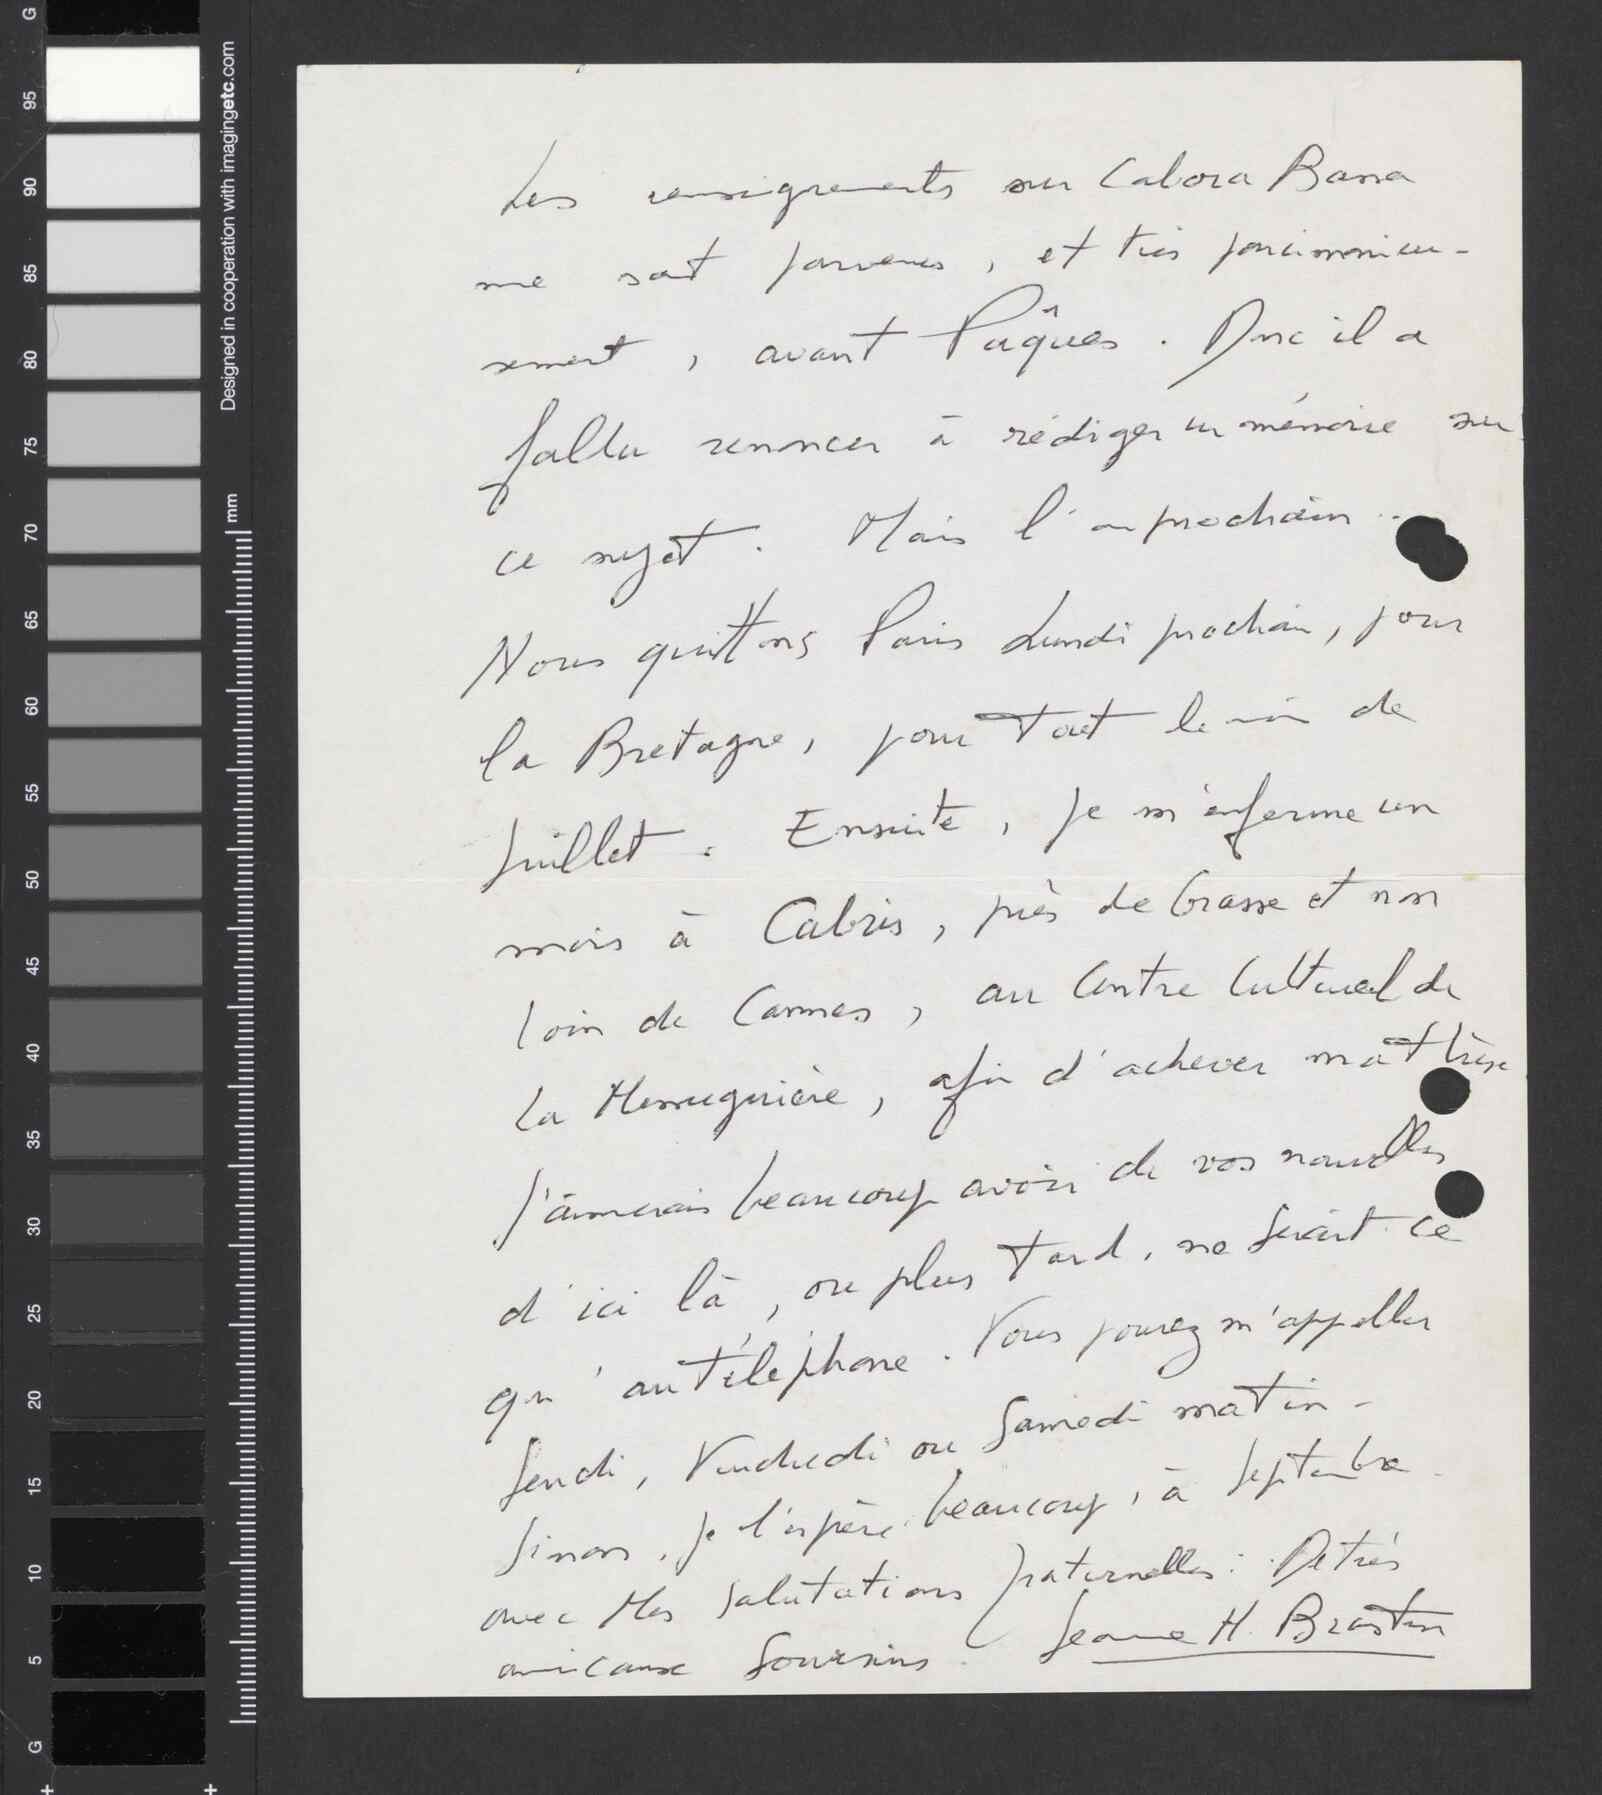 Les renseignements sur Cabora Bassa
me sont parvenus, et très parcimonieu-
sement, avant Pâques. Donc il a
fallu renoncer à rédiger un mémoire sur
ce sujet. Mais l'an prochain..
Nous quittons Paris Lundi prochain, pour
la Bretagne, pour tout le mois de
Juillet. Ensuite, je m'enferme un
mois à Cabris, près de Grasse et non
loin de Cannes, au Centre Culturel de
La Messuguière, afin d'achever ma thèse
J'aimerais beaucoup avoir de vos nouvelles
d'ici là, ou plus tard, ne serait-ce
qu'au téléphone. Vous pouvez m'appeller
Jeudi, Vendredi ou Samedi matin -
Sinon, je l'espère beaucoup, à Septembre
avec Mes Salutations fraternelles. De très
amicaux Souvenirs. Jeanne H.
G 95 90 85 80 75 70 65 60 55 50 45 40 35 30 25 20 15 10 5 G
Designed in cooperation with imagingetc.com
mm